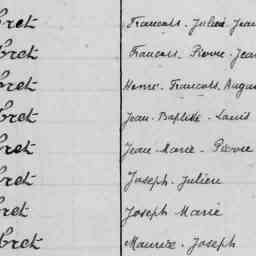 bret François - Julien Jean
bret François - Pierre - Jean
bret Henri - François - Augus
bret Jean - Baptiste - Louis
bret Jean - Marie - Pierre
bret Joseph - Julien
bret Joseph Marie
bret Maurice - Joseph